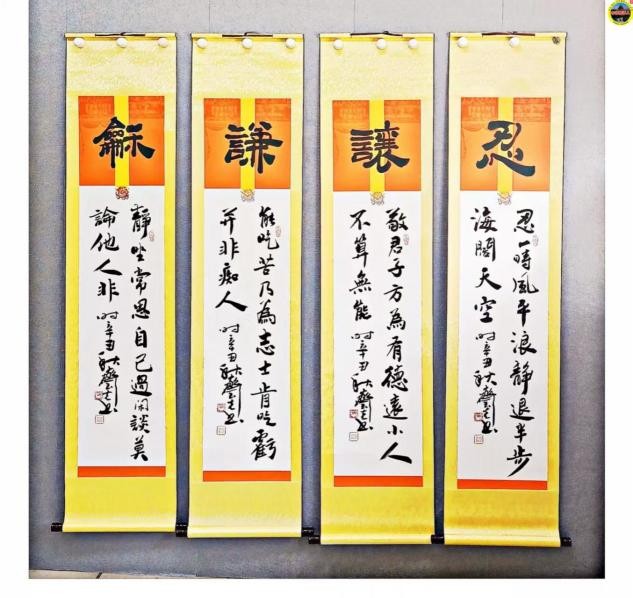 忍
忍一時風平浪靜退半步
海闊天空 時辛丑秋
讓
敬君子方為有德遠小人
不算無能 時辛丑秋
謙
能吃苦乃為志士肯吃虧
並非痴人 時辛丑秋
龢
靜坐常思自己過閑談莫
論他人非 時辛丑秋